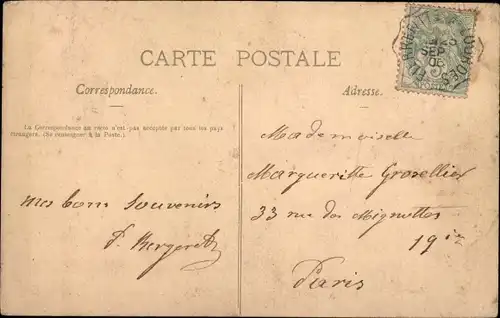 CARTE POSTALE
Correspondance.
Adresse.
La Correspondance au recto n'est pas acceptée par tous les pays
étrangers. (Se renseigner à la Poste.)
mes bons Souvenirs
F. Bergeret
Mademoiselle
Marguerithe Grosellier
33 rue des Mignottes
19
Paris